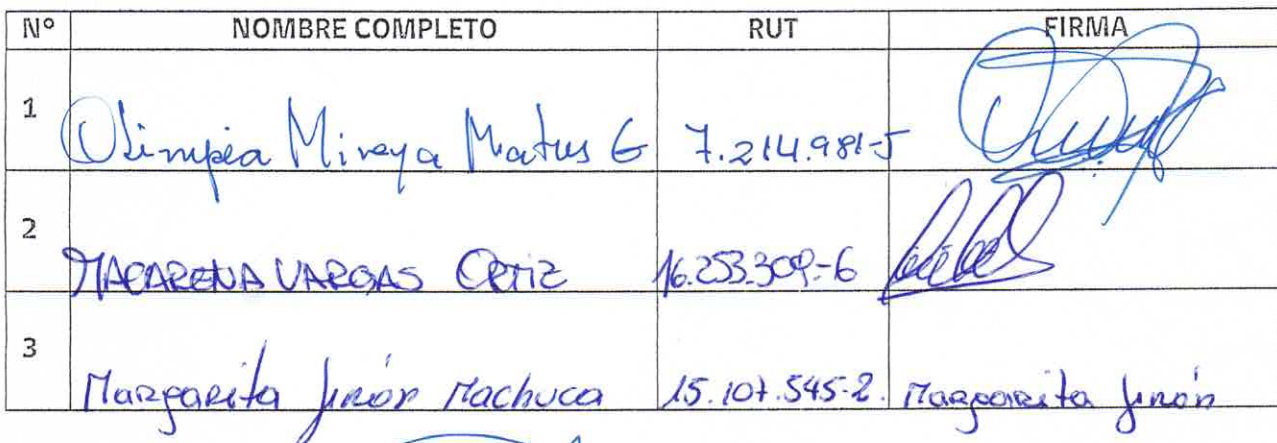 Nº NOMBRE COMPLETO RUT FIRMA
1 Olimpia Mireya Matus G 7.214.981-5
2 MACARENA VARGAS ORTIZ 16.253.309-6
3 Margarita Machuca 15.107.545-2. Margarita